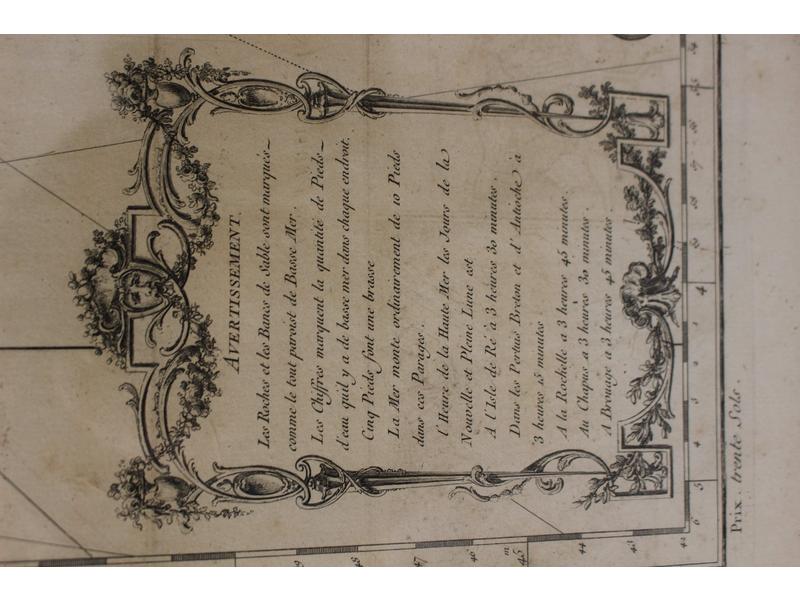 AVERTISSEMENT.
Les Roches et les Bancs de Sable sont marqués
comme le tout paroist de Basse Mer.
Les Chiffres marquent la quantité de Pieds
d'eau qu'il y a de basse mer dans chaque endroit.
Cinq Pieds font une brasse
La Mer monte ordinairement de 10 Pieds
dans ces Parages.
l'Heure de la Haute Mer les Jours de la
Nouvelle et Pleine Lune est
A l'Isle de Ré à 3 heures 30 minutes.
Dans les Pertuis Breton et d'Antioche à
3 heures 15 minutes
A la Rochelle a 3 heures 45 minutes.
Au Chapus a 3 heures 30 minutes.
A Brouage a 3 heures 45 minutes.
Prix. trente Sols.